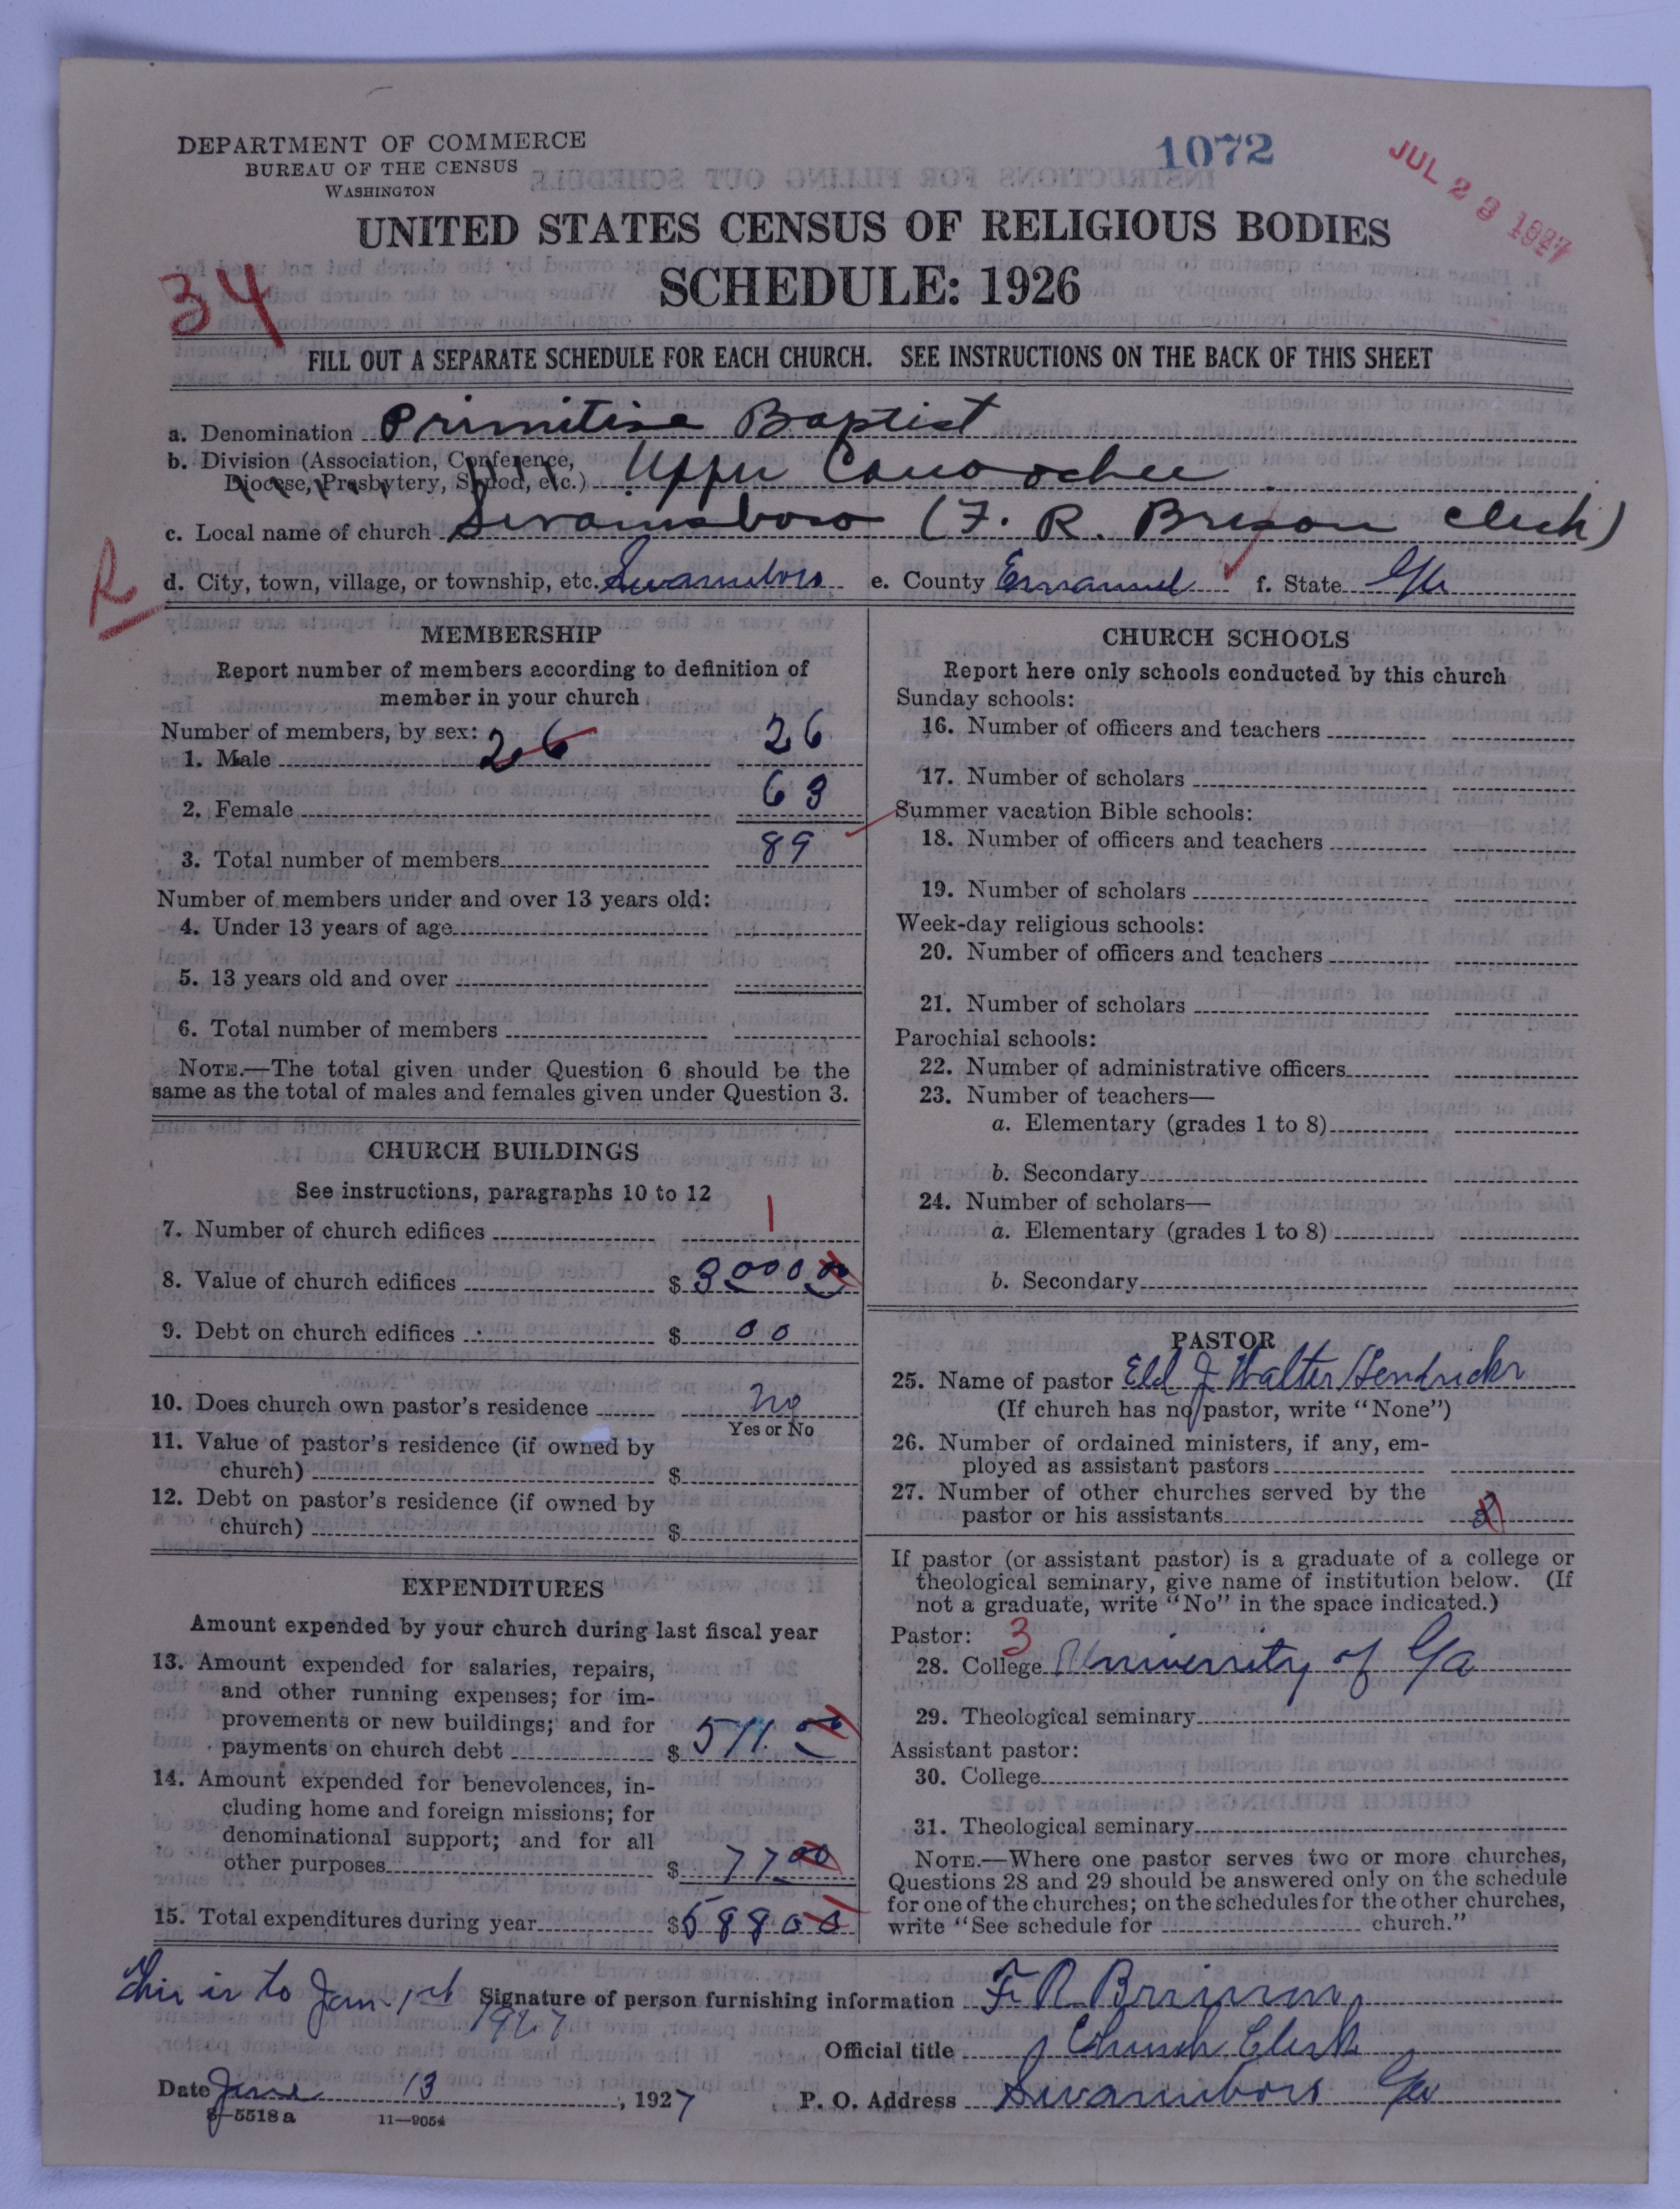 DEPARTMENT OF COMMERCE
BUREAU OF THE CENSUS
WASHINGTON
1072
JUL 23 1927
UNITED STATES CENSUS OF RELIGIOUS BODIES
SCHEDULE: 1926
34
FILL OUT A SEPARATE SCHEDULE FOR EACH CHURCH. SEE INSTRUCTIONS ON THE BACK OF THIS SHEET
a. Denomination Primitive Baptist
b. Division (Association, Conference,
Diocese, Presbytery, Synod, etc.) Upper Canoochee
c. Local name of church Swainsboro (F. R. Brinson Clerk)
R
d. City, town, village, or township, etc. Swainsboro e. County Emanuel f. State Ga
MEMBERSHIP
Report number of members according to definition of
member in your church
Number of members, by sex: 26
1. Male 26
2. Female 63
3. Total number of members 89
Number of members under and over 13 years old:
4. Under 13 years of age
5. 13 years old and over
6. Total number of members
NOTE.—The total given under Question 6 should be the
same as the total of males and females given under Question 3.
CHURCH BUILDINGS
See instructions, paragraphs 10 to 12
7. Number of church edifices 1
8. Value of church edifices $ 3000 00
9. Debt on church edifices $ 00
10. Does church own pastor's residence No
Yes or No
11. Value of pastor's residence (if owned by
church) $
12. Debt on pastor's residence (if owned by
church) $
EXPENDITURES
Amount expended by your church during last fiscal year
13. Amount expended for salaries, repairs,
and other running expenses; for im-
provements or new buildings; and for
payments on church debt $ 511.00
14. Amount expended for benevolences, in-
cluding home and foreign missions; for
denominational support; and for all
other purposes $ 77 00
15. Total expenditures during year $ 588 00
CHURCH SCHOOLS
Report here only schools conducted by this church
Sunday schools:
16. Number of officers and teachers
17. Number of scholars
Summer vacation Bible schools:
18. Number of officers and teachers
19. Number of scholars
Week-day religious schools:
20. Number of officers and teachers
21. Number of scholars
Parochial schools:
22. Number of administrative officers
23. Number of teachers—
a. Elementary (grades 1 to 8)
b. Secondary
24. Number of scholars—
a. Elementary (grades 1 to 8)
b. Secondary
PASTOR
25. Name of pastor Eld J Walter Hendricks
(If church has no pastor, write "None")
26. Number of ordained ministers, if any, em-
ployed as assistant pastors
27. Number of other churches served by the
pastor or his assistants 3
If pastor (or assistant pastor) is a graduate of a college or
theological seminary, give name of institution below. (If
not a graduate, write "No" in the space indicated.)
Pastor: 3
28. College University of Ga
29. Theological seminary
Assistant pastor:
30. College
31. Theological seminary
NOTE.—Where one pastor serves two or more churches,
Questions 28 and 29 should be answered only on the schedule
for one of the churches; on the schedules for the other churches,
write "See schedule for church."
This is to Jan. 1st 1927
Signature of person furnishing information F R Brinson
Official title Church Clerk
Date June 13, 1927 P. O. Address Swainsboro Ga
8—5518a 11—9054